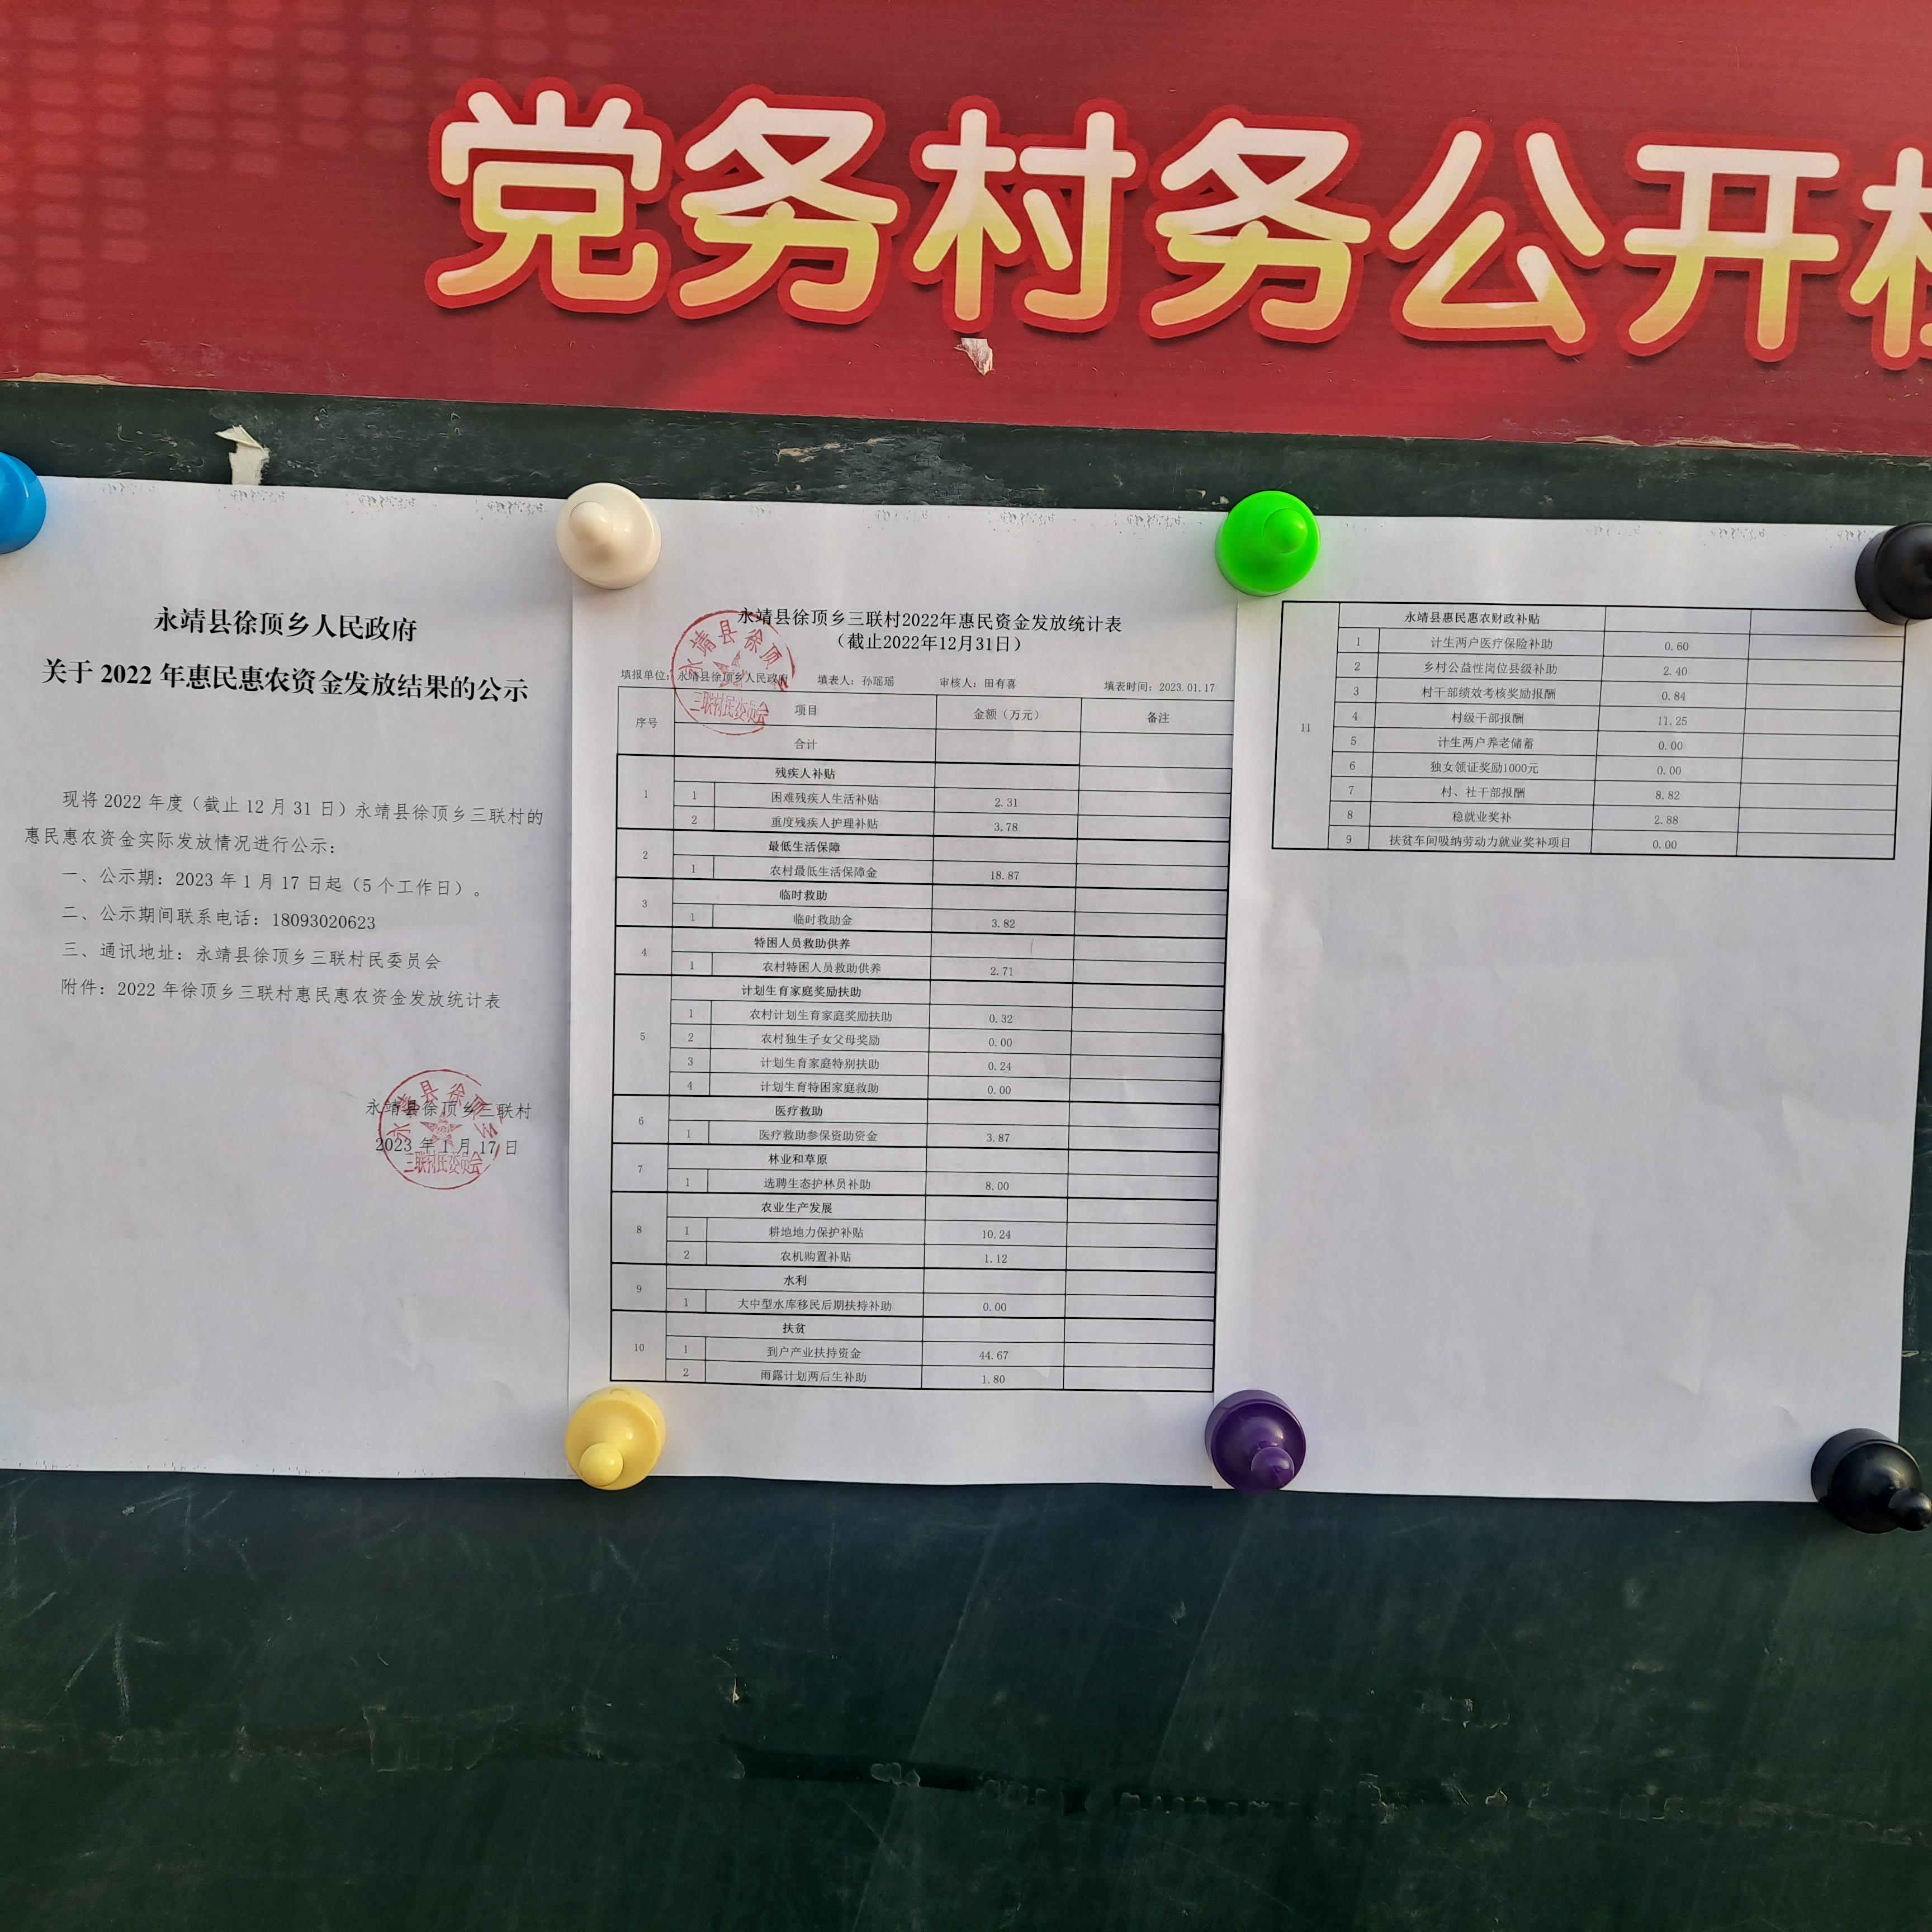 党务村务公开
永靖县徐顶乡人民政府
关于 2022 年惠民惠农资金发放结果的公示
现将 2022 年度（截止 12 月 31 日）永靖县徐顶乡三联村的
惠民惠农资金实际发放情况进行公示：
一、公示期：2023 年 1 月 17 日起（5 个工作日）。
二、公示期间联系电话：18093020623
三、通讯地址：永靖县徐顶乡三联村民委员会
附件：2022 年徐顶乡三联村惠民惠农资金发放统计表
永靖县徐顶乡三联村
2023 年 1 月 17 日
永靖县徐顶乡
三联村民委员会
永靖县徐顶乡三联村2022年惠民资金发放统计表
（截止2022年12月31日）
永靖县徐顶
三联村民委员会
填报单位：永靖县徐顶乡人民政府 填表人：孙瑶瑶 审核人：田有喜 填表时间：2023.01.17
序号 项目 金额（万元） 备注
合计
1 残疾人补贴
1 困难残疾人生活补贴 2.31
2 重度残疾人护理补贴 3.78
2 最低生活保障
1 农村最低生活保障金 18.87
3 临时救助
1 临时救助金 3.82
4 特困人员救助供养
1 农村特困人员救助供养 2.71
5 计划生育家庭奖励扶助
1 农村计划生育家庭奖励扶助 0.32
2 农村独生子女父母奖励 0.00
3 计划生育家庭特别扶助 0.24
4 计划生育特困家庭救助 0.00
6 医疗救助
1 医疗救助参保资助资金 3.87
7 林业和草原
1 选聘生态护林员补助 8.00
8 农业生产发展
1 耕地地力保护补贴 10.24
2 农机购置补贴 1.12
9 水利
1 大中型水库移民后期扶持补助 0.00
10 扶贫
1 到户产业扶持资金 44.67
2 雨露计划两后生补助 1.80
11 永靖县惠民惠农财政补贴
1 计生两户医疗保险补助 0.60
2 乡村公益性岗位县级补助 2.40
3 村干部绩效考核奖励报酬 0.84
4 村级干部报酬 11.25
5 计生两户养老储蓄 0.00
6 独女领证奖励1000元 0.00
7 村、社干部报酬 8.82
8 稳就业奖补 2.88
9 扶贫车间吸纳劳动力就业奖补项目 0.00